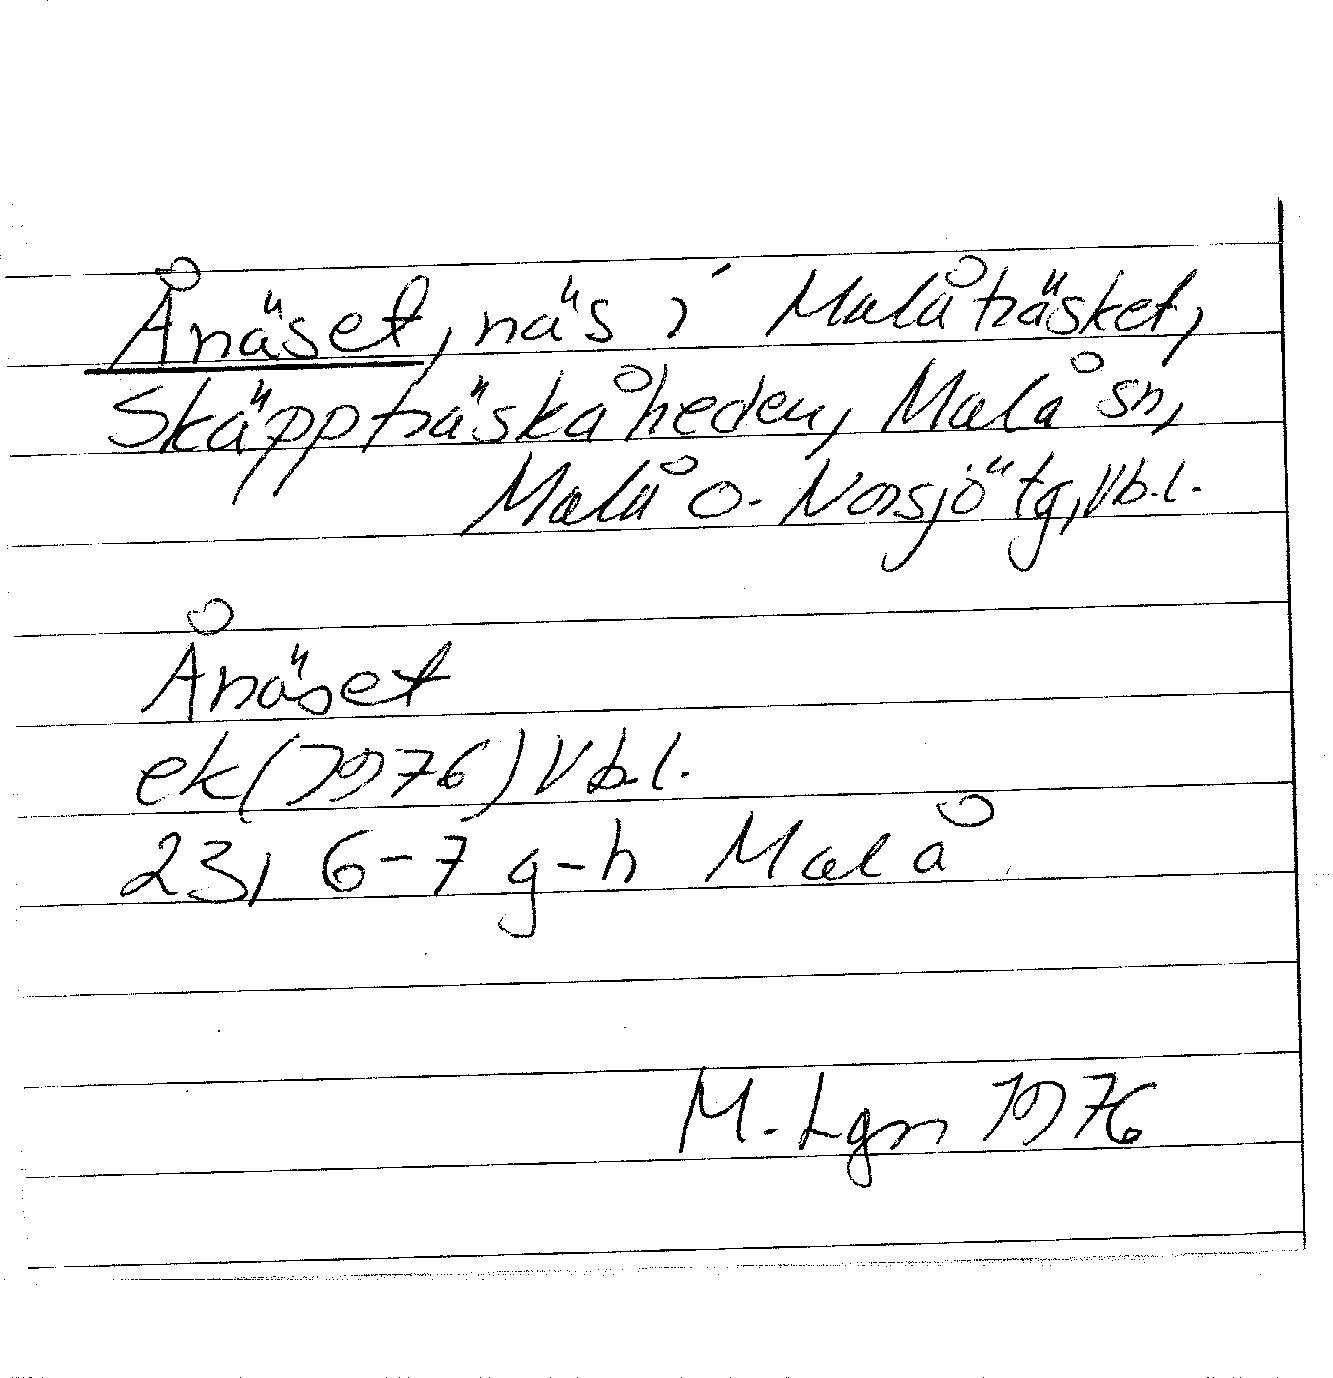 Ånäset, näs i Malåträsket,
Skäppträskåheden, Malå sn,
Malå o. Norsjö tg, Vbl.
Ånäset
ek (1976) Vbl.
23I 6-7 g-h Malå
M. Lgm 1976